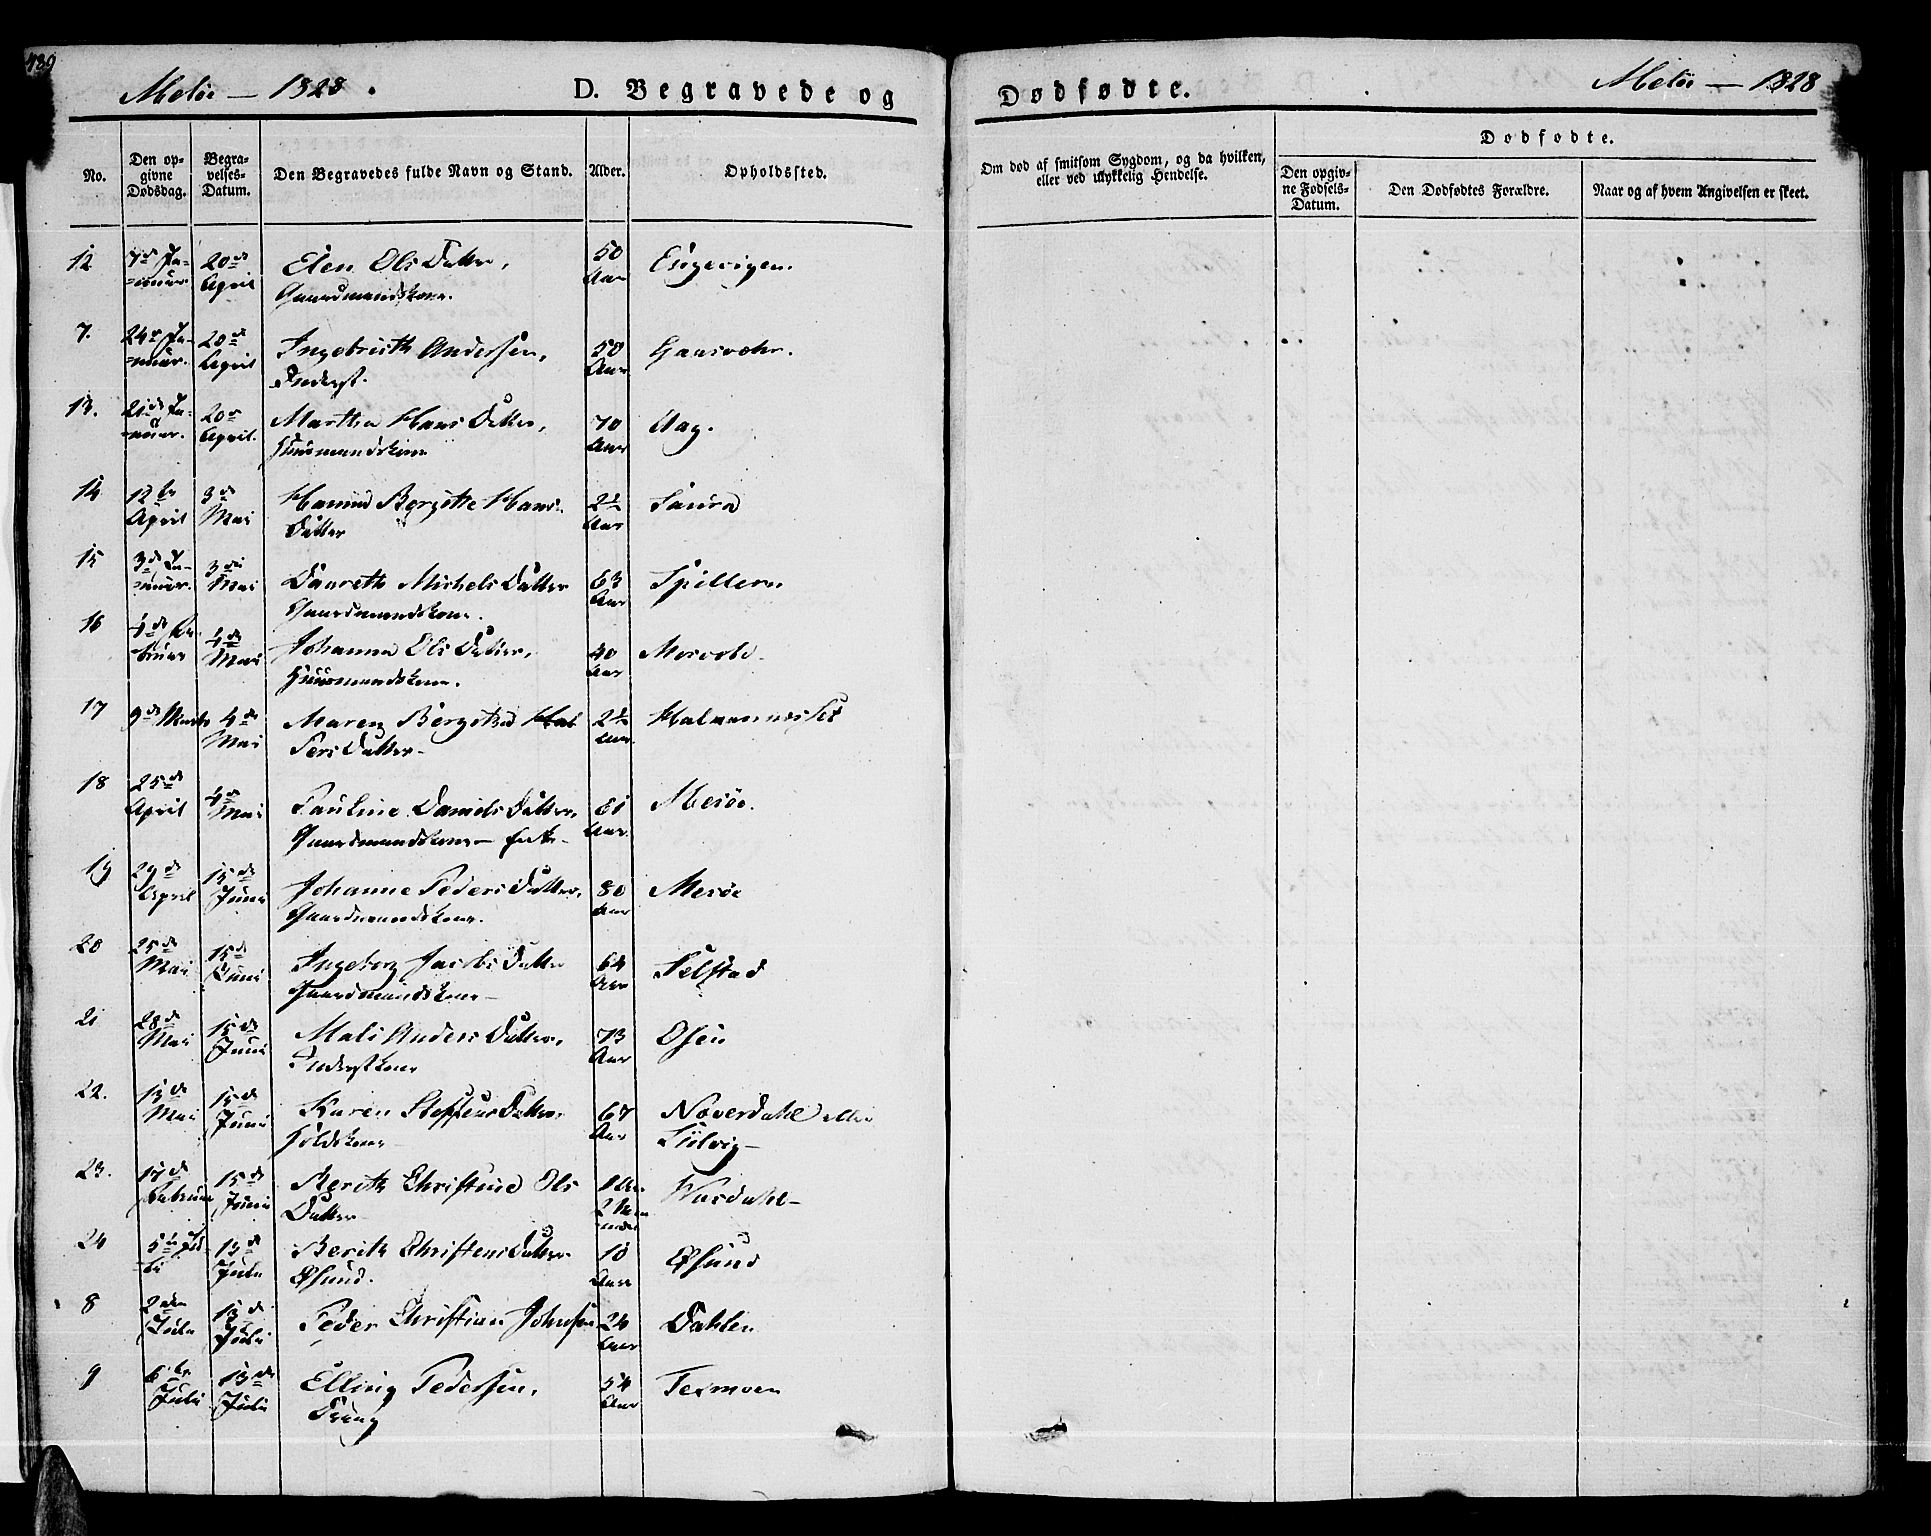 Meløe — 1828.
D. Begravede og
Dødfødte.
Meløe — 1828
No.
Den op-
givne
Dødsdag.
Begra-
velses-
Datum.
Den Begravedes fulde Navn og Stand.
Alder.
Opholdssted.
Om død af smitsom Sygdom, og da hvilken,
eller ved ulykkelig Hendelse.
Dødfødte.
Den opgiv-
ne Fødsels-
Datum.
Den Dødfødtes Forældre.
Naar og af hvem Angivelsen er skeet.
12 7de Ja- 20de Elen Ols Datter, 50 Engevigen.
=nuar. April Gaardmandskone. Aar
7. 24de Ja- 20de Ingebrigth Andersen, 50
=nuar. April Inderst. Aar
13. 21de Ja- 20de Martha Hans Datter, 70 Aag.
=nuar. April. Huusmandskone Aar
14 12te 3de Hanna Bergitte Hans 2½ Saura
April Mai Datter Aar
15 3de Ja- 3die Daareth Michels Datter 63 Spilleren
=nuar. Mai Gaardmandskone. Aar
16 4de Fe- 4de Johanna Ols Datter, 40
bruar Mai Huusmandskone. Aar
17 9de Marts 4de Maren 2½
Mai Pers Datter Aar
18 25de 4de Pauline Daniels Datter, 81 Mesøe.
April Mai Gaardmandskone Aar
19 29de 15de Johanne Peders Datter, 80 Mesøe
April Juni Gaardmandskone. Aar
20 25de 15de Ingeborg Jacobs Datter 64 Selstad
Mai Juni Gaardmandskone Aar
21 28de 15de Mali Anders Datter, 73 Osen
Mai Juni Inderstkone Aar
22. 13de 15de Karen Steffens Datter, 67 Nåverdahl eller
Mai Juni Aar
23. 17de 15de Berith Christine Ols 1 Aar
Februar Juni Datter 2 Maa
=neder
24 5te Ju- 13de Berith Christens Datter 10 Øsund
li Juli Øsund. Aar
8 2den 13de Peder Christian Johnsen 24 Dahlen
Julii Julii Aar
9 6te 13de Elling Pedersen, 54 Termoen
Julii Julii Aar